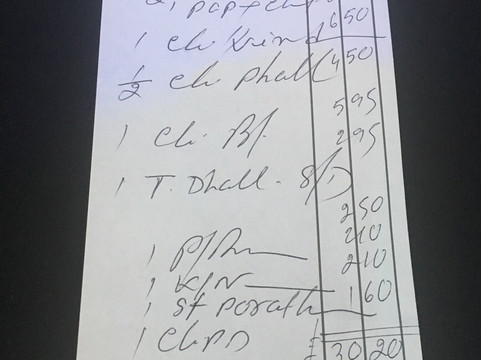 pap + ch
1 650
1 Ch
1/2 Ch Phall 450
595
1 Ch. B/. 295
1 T. Dhall - S/D
250
1 P/R 210
1 K/N 210
1 St Porath 160
1 Chps
£ 30 20